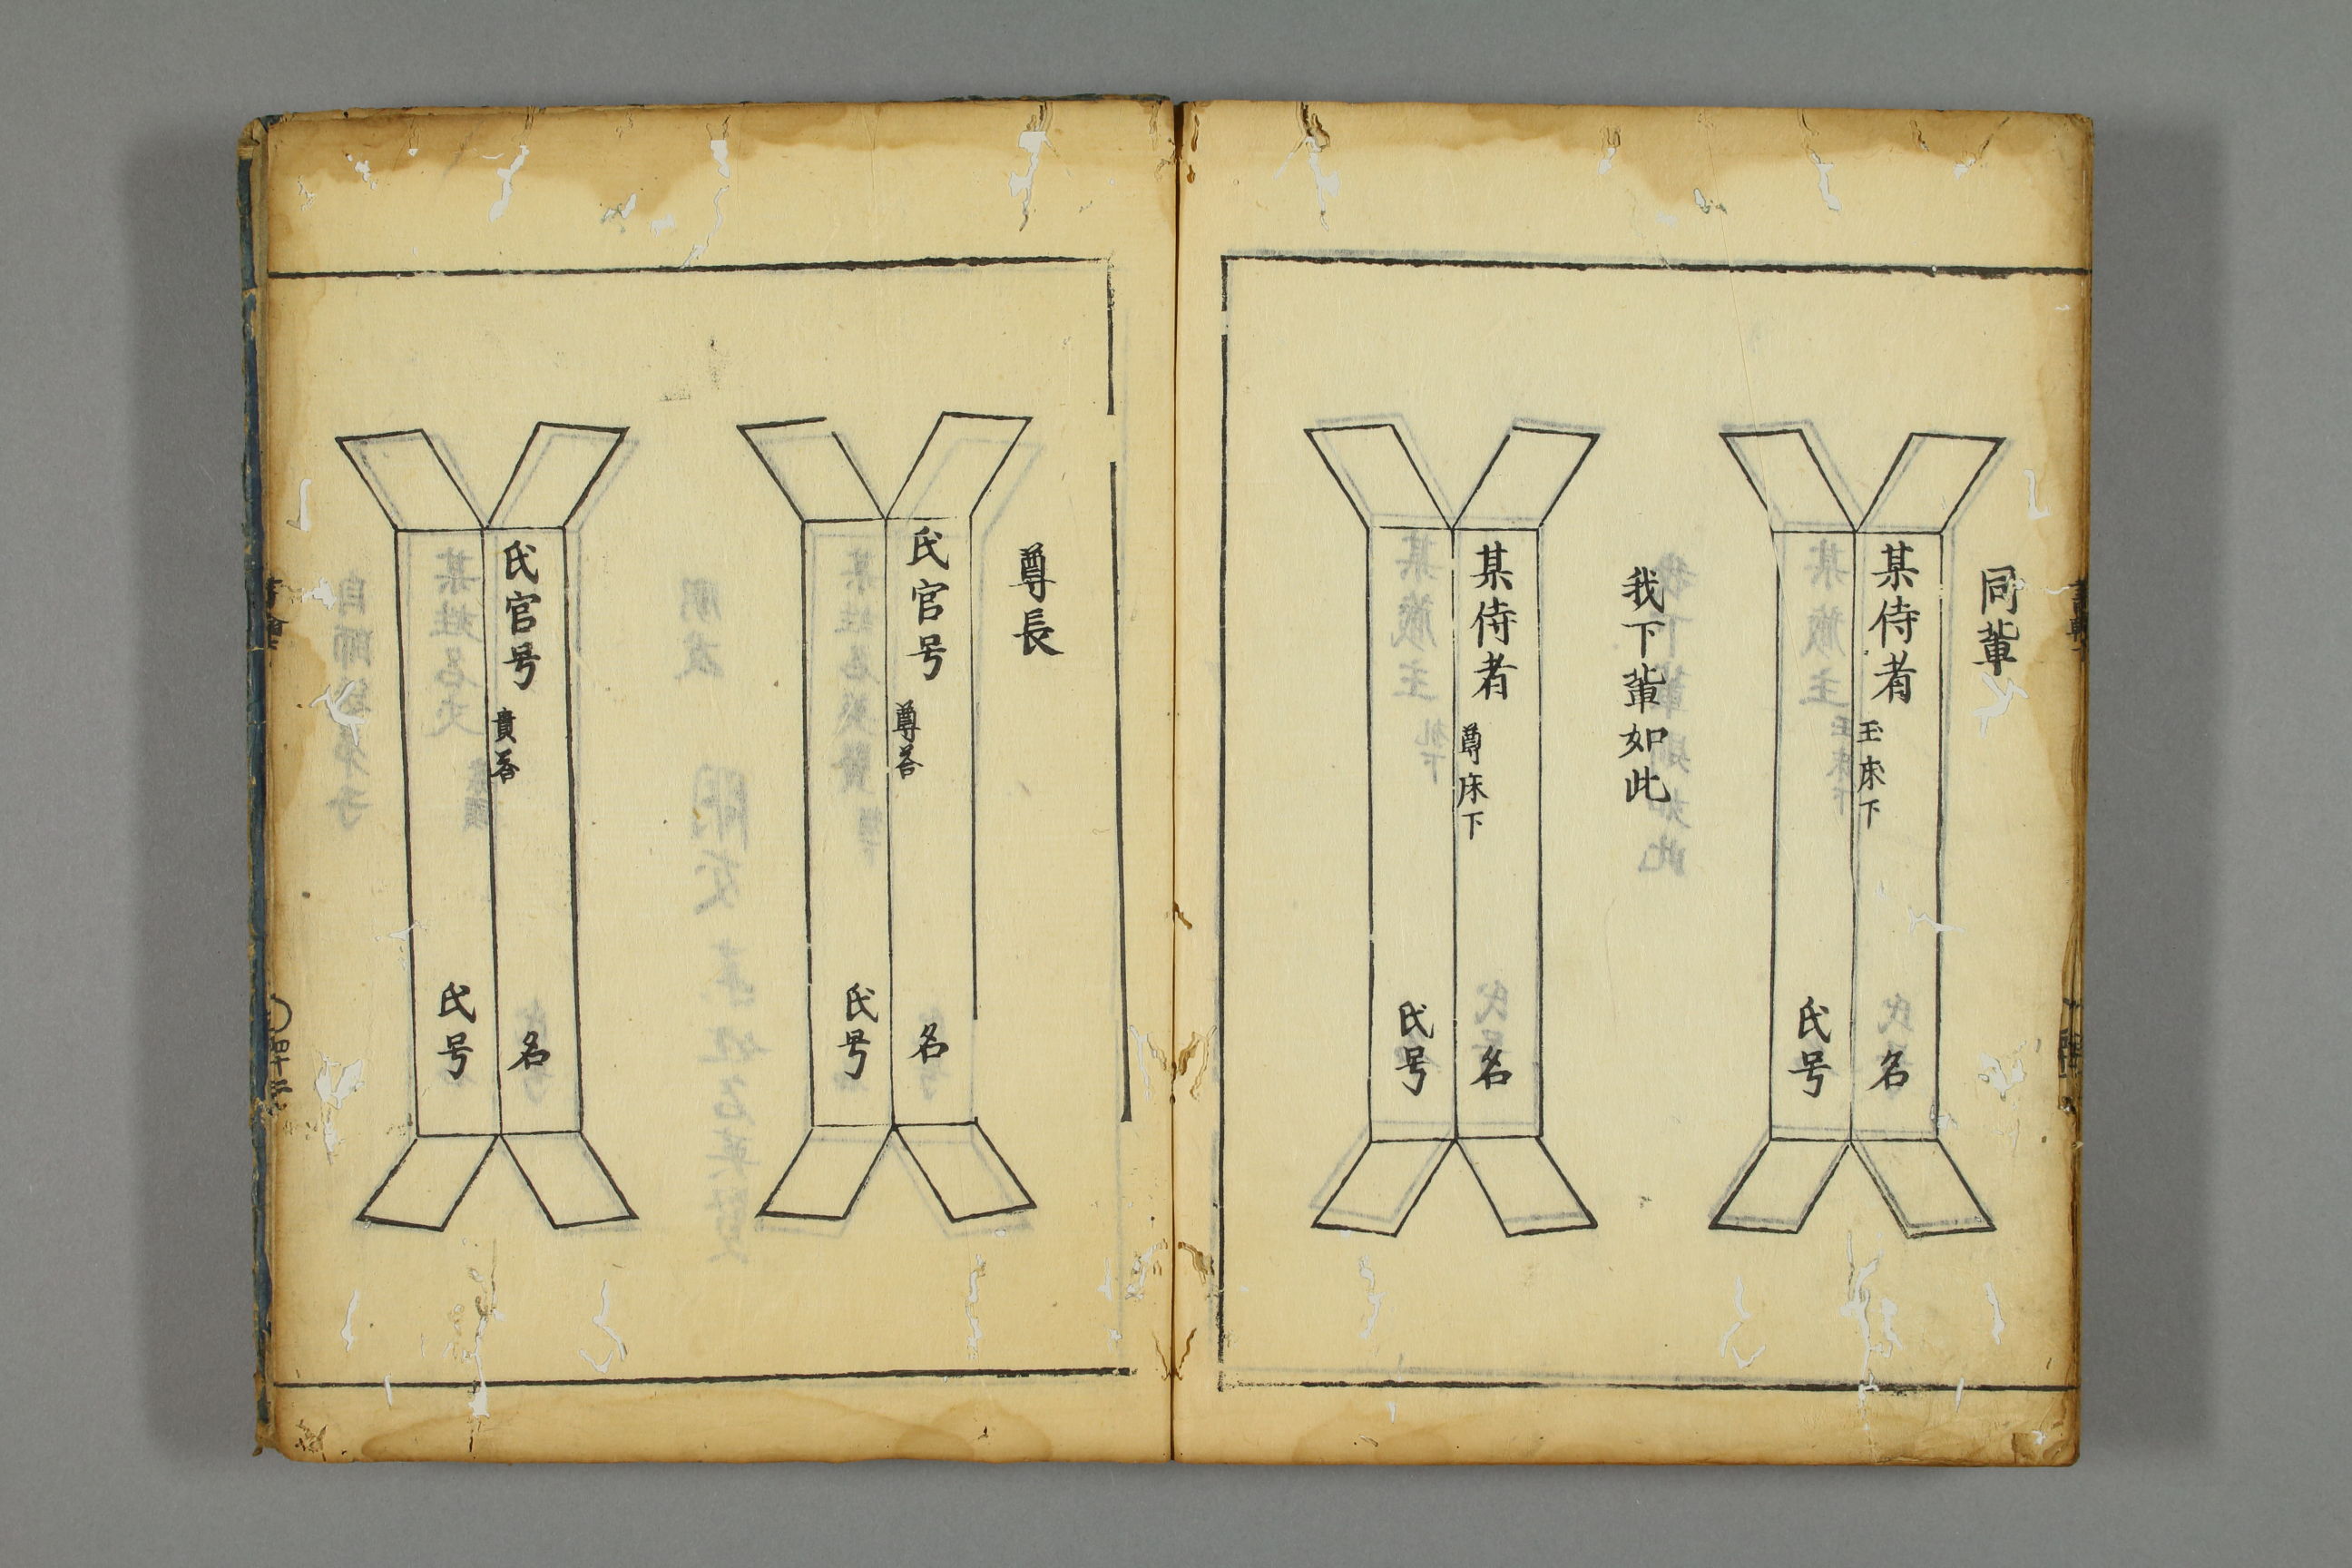 同輩
某侍者
玉床下
名
氏号
我下輩如此
某侍者
尊床下
名
氏号
尊長
氏官号
尊荅
名
氏号
氏官号
貴荅
名
氏号